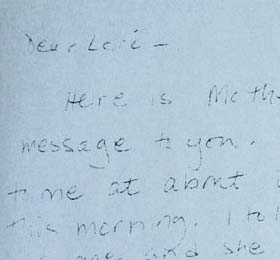 Dear Lori —
Here is Moth
message to you.
to me at about
this morning. I tol
and she